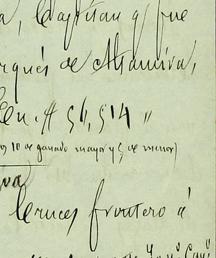 a, Capitan q fue
arqués de Altamira,
en # 56,514 "
os 10 de ganado mayor y 5 de menor)
va
Cruces frontero á